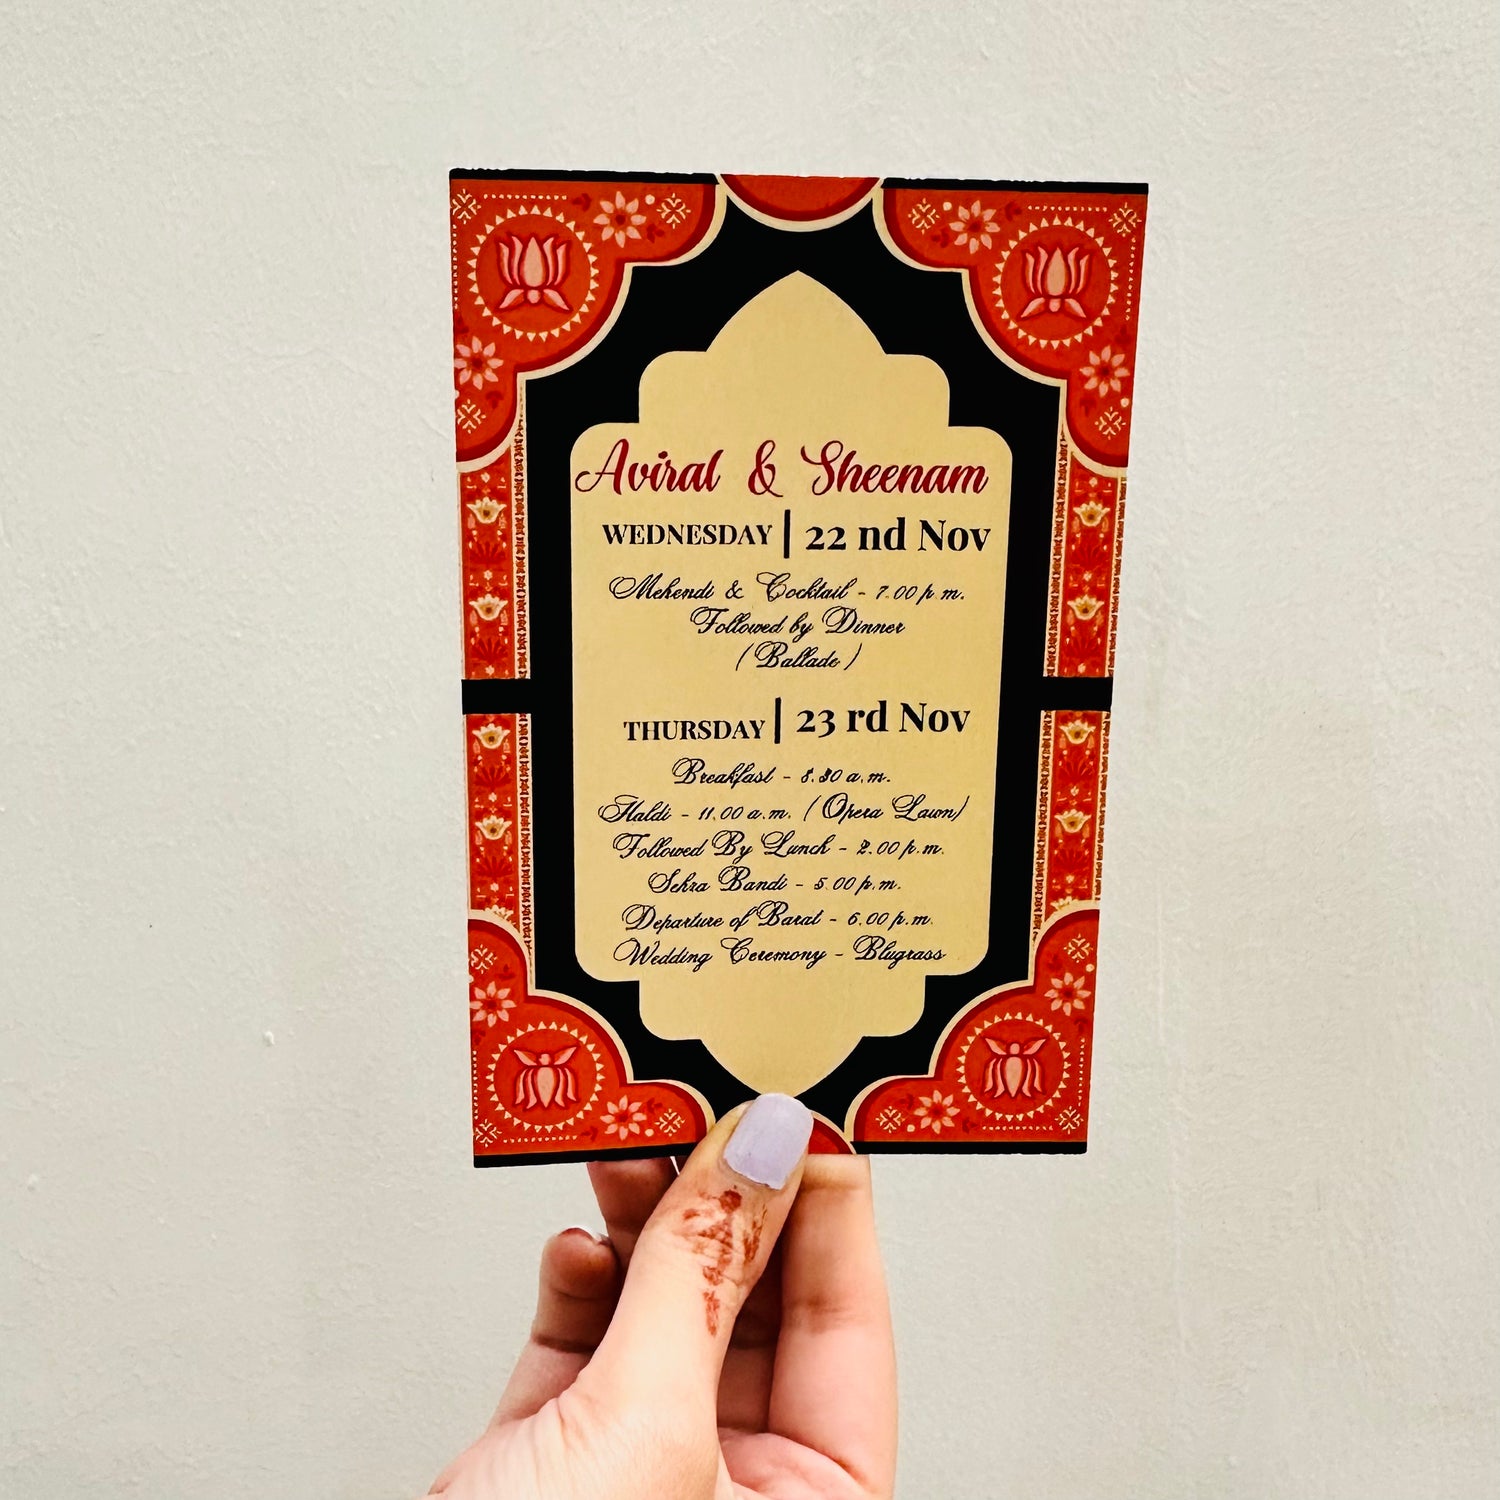 Aviral & Sheenam
WEDNESDAY | 22 nd Nov
Mehendi & Cocktail - 7.00 p.m.
Followed by Dinner
(Ballade)
THURSDAY | 23 rd Nov
Breakfast - 8.30 a.m.
Haldi - 11.00 a.m. (Opera Lawn)
Followed By Lunch - 2.00 p.m.
Sehra Bandi - 5.00 p.m.
Departure of Barat - 6.00 p.m.
Wedding Ceremony - Blugrass